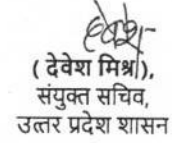 ( देवेश मिश्र ),
संयुक्त सचिव,
उत्तर प्रदेश शासन